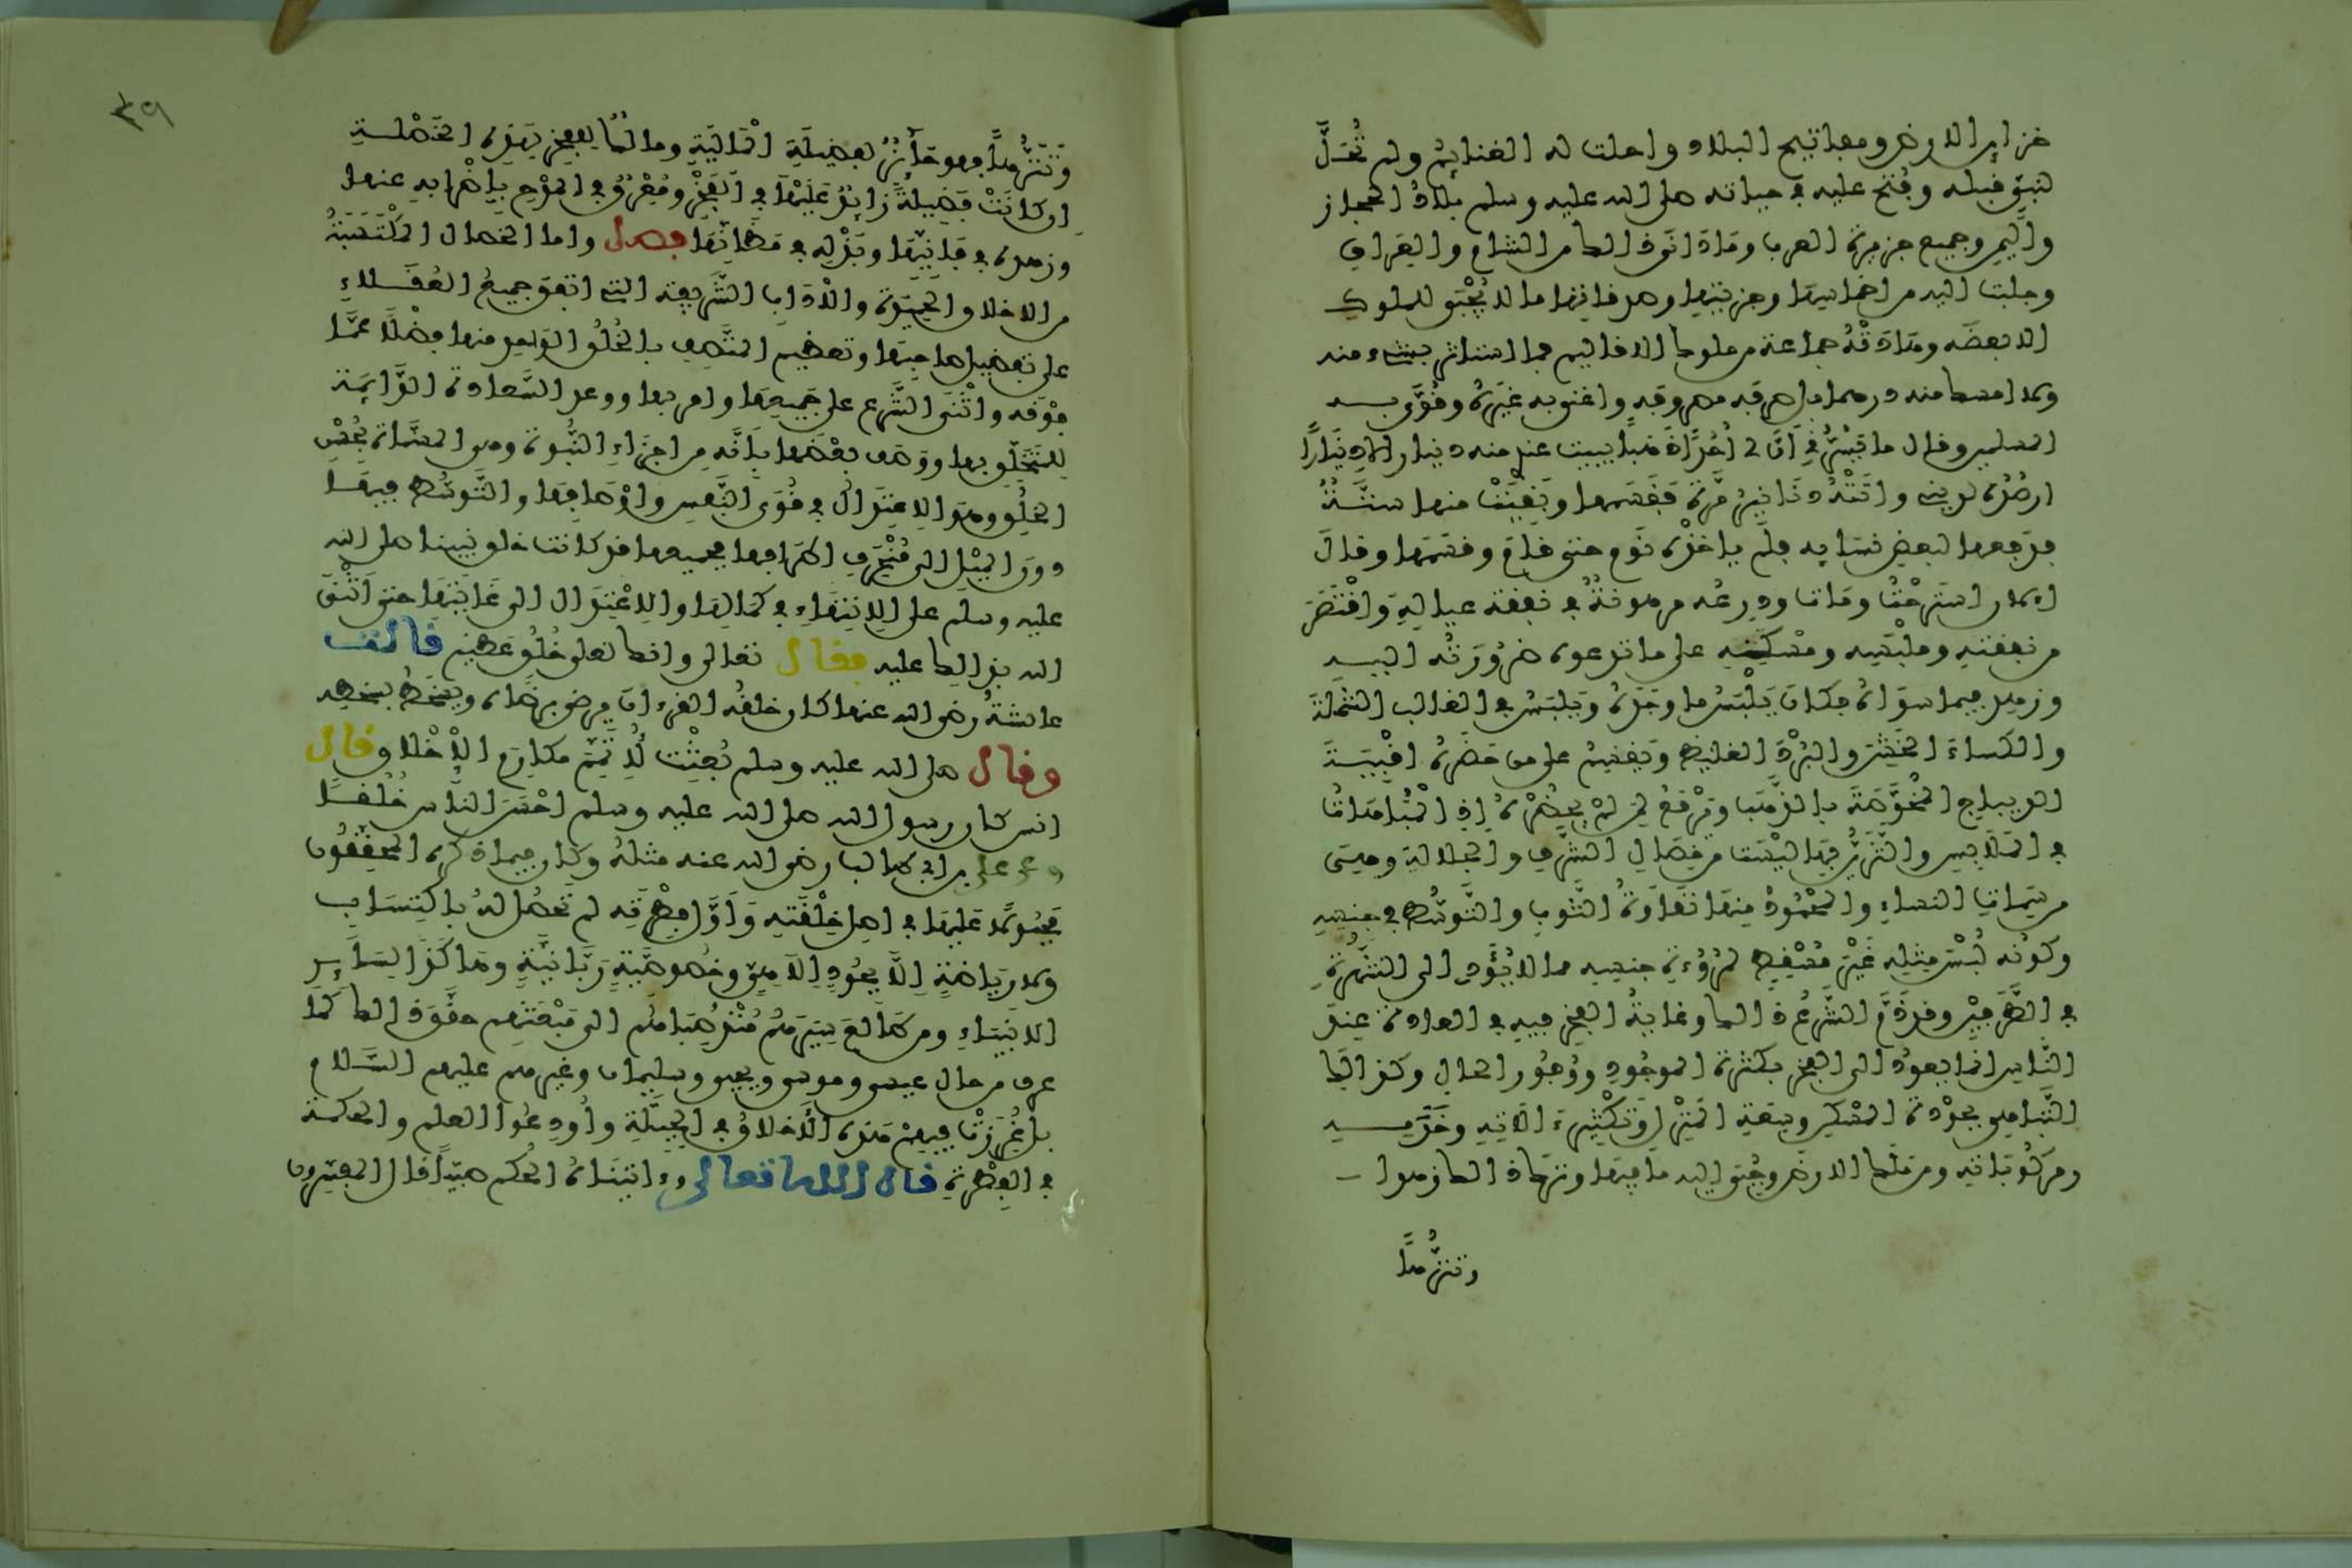 خزاين الارض ومفاتيح البلاد واحلت له الغنايم ولم تُحَلَّ
لنبيّ قبله وفُتح عليه في حياته صلى الله عليه وسلم بلادُ الحجاز
واليمن وجميع جزيرة العرب وما دانَى ذالك من الشام والعراق
وجلبت اليه من اخماسها وجزيتها وصدقاتها ما لا يُجْبَى للملوك
الا بعضه وهَادَتْهُ جماعة من ملوك الاقاليم فما استاثر بشيء منه
ولا امسك منه درهما بل صرفه مصروفه واغنى به غيره وقَوَّى به
المسلمين وقال ما يَسُرُّنِي أَنَّ لي أُحُدًا ذهبا يبيت عندي منه دينار الا دينارًا
ارصُدُه لديني واتته دنانير مَرّة فقسمها وبَقِيَتْ منها ستَّةٌ
فدفعها لبعض نسايه فلم ياخذه نوم حتى قام وقسمها وقال
الان استرحتُ ومات ودِرعُه مرهونة في نفقة عياله واقتصر
من نفقته وملبسه ومسكنه على ما تدعوه ضرورته اليه
وزهد فيما سواه فكان يَلْبَسُ ما وجده ويلبس في الغالب الشملة
والكساء الخشن والبُرْد الغليظ ويقسم على من حضره اقبية
الديباج المُخَوَّصَة بالذهب ويَرْفَعُ لمن لمْ يحضُرْه إذ المُباهاتُ
في الملابس والتَّزَيُّن بها ليست من خصال الشرف والجلالة وهي
من سمات النساء والمحمودُ منها نقاوةُ الثوب والتَّوسُّط في جنسه
وكونه لُبْسَ مثله غَيْرَ مُسْقِطٍ لمُرُوءَةِ جنسه مما لا يُؤَدّي الى الشهرة
في الطَّرَفيْن وقد ذَمَّ الشَّرعُ ذالك وغاية الفخر فيه في العادة عند
النَّاس انما يعود الى الفخر بكثرة الموجود ووُفور الحال وكذالك
التباهي بجودة المسكن وسعة المنزل وتكثير الاته وخَدَمه
ومركوباته ومن مَلَك الارض وجُبي اليه ما فيها وترك ذالك زهدا
وتنَزُّهًا
٣٩
وتَنَزُّهًا فهو حائز لفضيلة المالية ومالك للفخر بهذه الخصلة
ان كانت فضيلةً زايدٌ عليها في الفخر ومُعْرِقٌ في المدح باضرابه عنها
وزهده في فانيها وبَذْلِه في مظانّها فصل واما الخصال المكتسبة
من الاخلاق الحميدة والآداب الشريفة التي اتفق جميع العقلاء
على تفضيل صاحبها وتعظيم المتصف بالخُلُق الواحد منها فضلًا عمَّا
فوْقه واثْنَى الشرع على جميعها وامر بها ووعد السَّعادة الدَّايمة
للمتخلّق بها ووصف بعضها بأنه من اجزاء النُّبُوَّة وهي المسمّاة بحُسْن
الخلُق وهو الاعتدال في قُوَى النَّفس واوْصافها والتَّوسُّط فيها
دون الميْل الى مُنْحَرف اطرافها فجميعها قد كانت خلق نبينا صلى الله
عليه وسلم على الانتهاء في كمالها والاعتدال الى غايتها حتى أثْنَى
الله بذالك عليه فقال تعالى وانك لعلى خُلُق عظيم قالت
عائشةُ رضي الله عنها كان خلقُه القرءان يرضى برضاه ويسخط بسخطه
وقال صلى الله عليه وسلم بُعِثْت لأُتَمِّم مكارم الأخلاق وقال
انس كان رسول الله صلى الله عليه وسلم احْسَن الناس خُلُقًا
وعن علي بن ابي طالب رضي الله عنه مثلهُ وكان فيما ذكره المحقّقون
مجبولًا عليها في اصل خِلْقته وأوَّل فِطْرته لم تَحْصُل له باكتساب
ولا رياضة إلَّا بجُودٍ إلاهي وخصوصيّة ربّانيّة وهاكذا لساير
الانبياء ومن طالع سِيَرَهُمْ مُنْذُ صِبَاهُم الى مَبْعَثِهم حقَّق ذالك كما
عرف من حال عيسى وموسى ويحيى وسليمان وغيرهم عليهم السلام
بل غُرِزَتْ فيهمْ هذه الأخلاقُ في الجِبِلَّة وأُودِعُوا العلم والحكمة
في الفِطْرة قال الله تعالى وءاتيناه الحُكم صَبِيًّا قال المفسرون